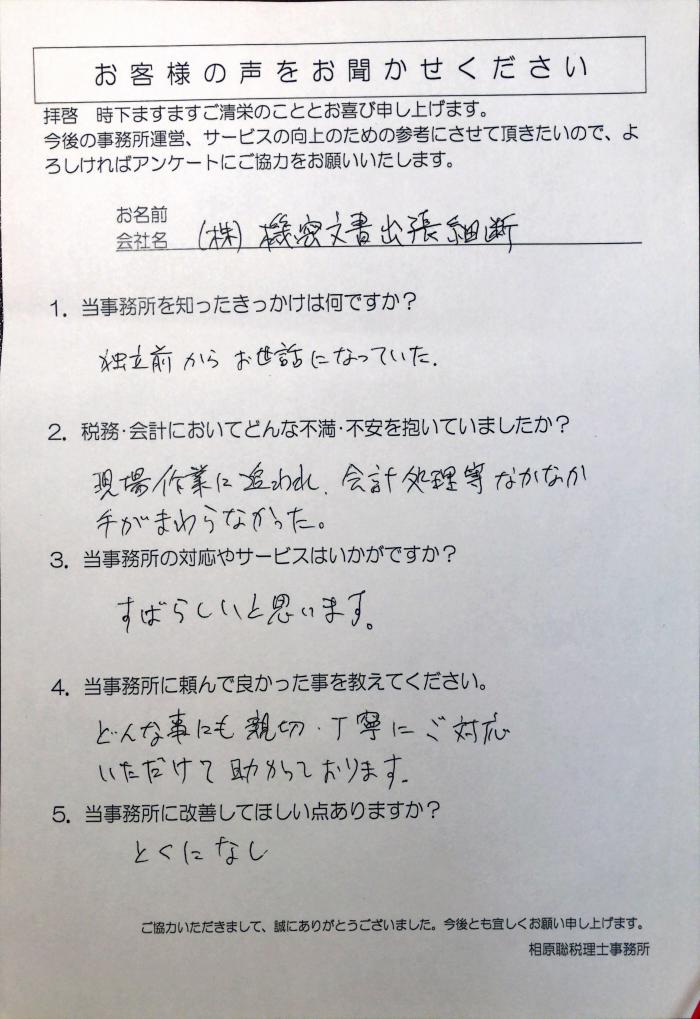 お客様の声をお聞かせください
拝啓　時下ますますご清栄のこととお喜び申し上げます。
今後の事務所運営、サービスの向上のための参考にさせて頂きたいので、よ
ろしければアンケートにご協力をお願いいたします。
お名前
会社名　(株)機密文書出張細断
1．当事務所を知ったきっかけは何ですか？
独立前からお世話になっていた.
2．税務・会計においてどんな不満・不安を抱いていましたか？
現場作業に追われ、会計処理等なかなか
手がまわらなかった。
3．当事務所の対応やサービスはいかがですか？
すばらしいと思います。
4．当事務所に頼んで良かった事を教えてください。
どんな事にも親切・丁寧にご対応
いただけて助かっております.
5．当事務所に改善してほしい点ありますか？
とくになし
ご協力いただきまして、誠にありがとうございました。今後とも宜しくお願い申し上げます。
相原聡税理士事務所